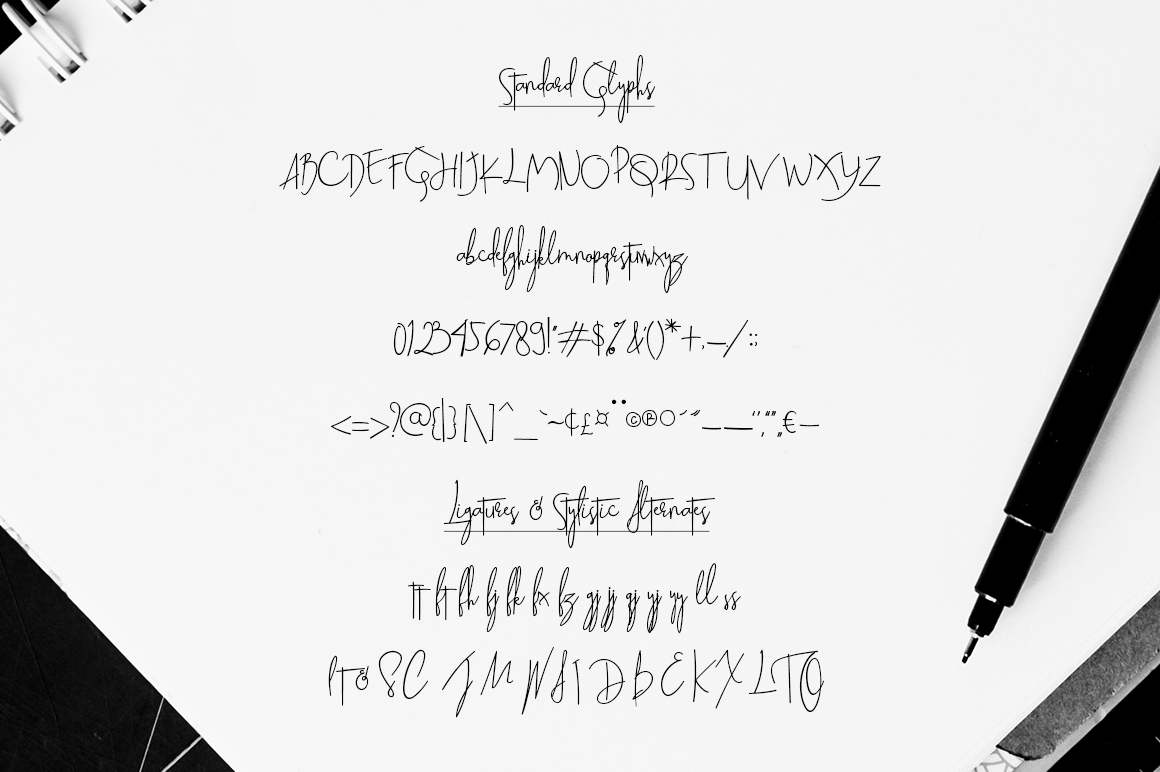 Standard Glyphs
ABCDEFGHIJKLMNOPQRSTUVWXYZ
abcdefghijklmnopqrstuvwxyz
0123456789!"#$%&'()*+,-./:;
<=>?@{|}[\]^_`~¢£¤¨©®○´˝–—‘’‚“”„€−
Ligatures & Stylistic Alternates
tt ft fh fj fk fx fz gj jj qj yj yy ll ss